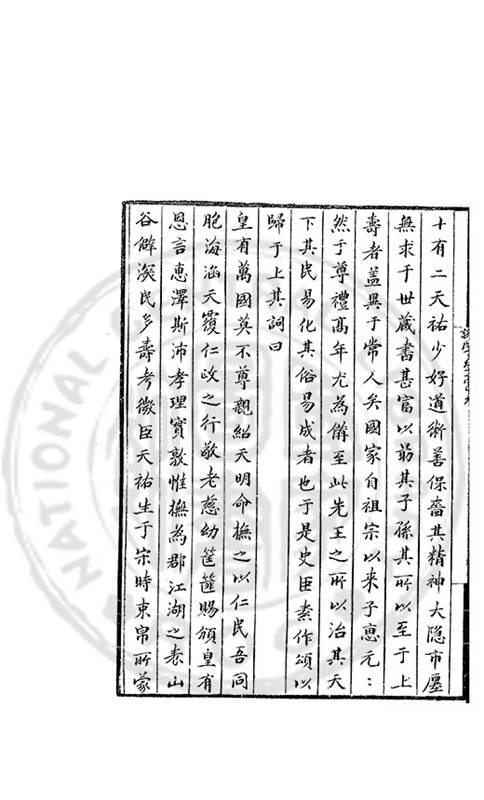 十有二天祐少好道術善保嗇其精神大隐市廛
無求于世藏書甚富以勗其子孫其所以至于上
壽者盖異于常人矣國家自祖宗以来子惠元:
然于尊禮髙年尤為備至此先王之所以治其天
下其民易化其俗易成者也于是史臣素作頌以
歸于上其詞曰
皇有萬國莫不尊親紹天明命撫之以仁民吾同
胞海涵天覆仁政之行敬老慈幼筐篚賜頒皇有
恩言惠澤斯沛孝理實敦惟撫為郡江湖之表山
谷僻深民多壽考徵臣天祐生于宋時束帛所蒙
NATIONAL